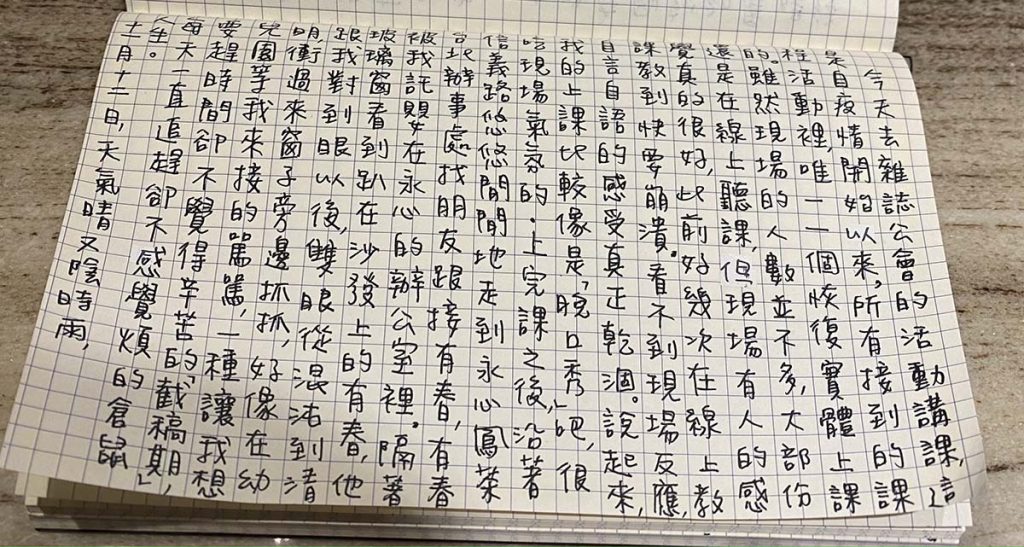 今天去雜誌公會的活動講課,這
是自疫情開始以來,所有接到的課
程活動裡,唯一一個恢復實體上課
的。雖然現場的人數並不多,大部份
還是在線上聽課,但現場有人的感
覺真的很好,此前好幾次在線上教
課教到快要崩潰。看不到現場反應,
自言自語的感受真正乾涸。說起來,
我的上課比較像是「脫口秀」吧,很
吃現場氣氛的。上完課之後,沿著
信義路悠悠閒閒地走到永心鳳茶
台北辦事處找朋友跟接有春,有春
被我託嬰在永心的辦公室裡。隔著
玻璃窗看到趴在沙發上的有春,他
跟我對到眼以後,雙眼從混沌到清
明衝過來窗子旁邊抓抓,好像在幼
兒園等我來接的罵罵,一種讓我想
要趕時間卻不覺得辛苦的「截稿期」,
每天一直追趕卻不感覺煩的倉鼠
人生。
十一月十二日,天氣晴又陰時雨,